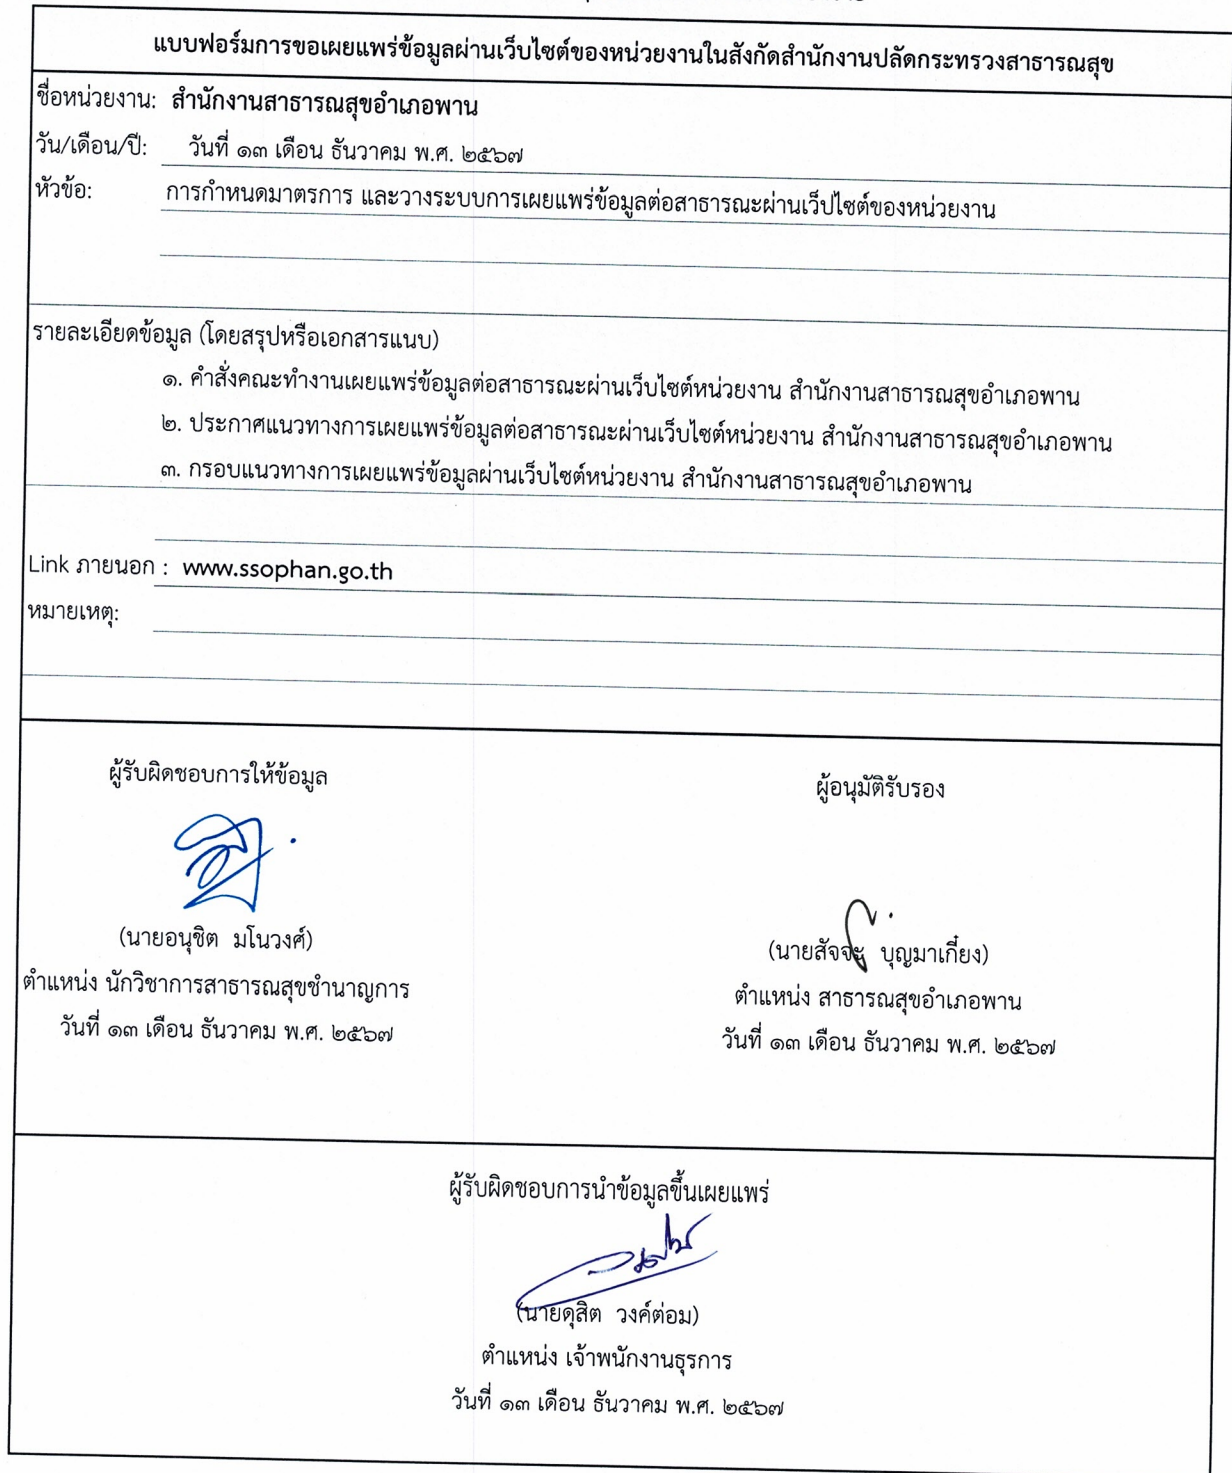 แบบฟอร์มการขอเผยแพร่ข้อมูลผ่านเว็บไซต์ของหน่วยงานในสังกัดสำนักงานปลัดกระทรวงสาธารณสุข
ชื่อหน่วยงาน: สำนักงานสาธารณสุขอำเภอพาน
วัน/เดือน/ปี: วันที่ ๑๓ เดือน ธันวาคม พ.ศ. ๒๕๖๗
หัวข้อ: การกำหนดมาตรการ และวางระบบการเผยแพร่ข้อมูลต่อสาธารณะผ่านเว็ปไซต์ของหน่วยงาน
รายละเอียดข้อมูล (โดยสรุปหรือเอกสารแนบ)
๑. คำสั่งคณะทำงานเผยแพร่ข้อมูลต่อสาธารณะผ่านเว็บไซต์หน่วยงาน สำนักงานสาธารณสุขอำเภอพาน
๒. ประกาศแนวทางการเผยแพร่ข้อมูลต่อสาธารณะผ่านเว็บไซต์หน่วยงาน สำนักงานสาธารณสุขอำเภอพาน
๓. กรอบแนวทางการเผยแพร่ข้อมูลผ่านเว็บไซต์หน่วยงาน สำนักงานสาธารณสุขอำเภอพาน
Link ภายนอก : www.ssophan.go.th
หมายเหตุ:
ผู้รับผิดชอบการให้ข้อมูล
(นายอนุชิต มโนวงศ์)
ตำแหน่ง นักวิชาการสาธารณสุขชำนาญการ
วันที่ ๑๓ เดือน ธันวาคม พ.ศ. ๒๕๖๗
ผู้อนุมัติรับรอง
(นายสัจจะ บุญมาเกี๋ยง)
ตำแหน่ง สาธารณสุขอำเภอพาน
วันที่ ๑๓ เดือน ธันวาคม พ.ศ. ๒๕๖๗
ผู้รับผิดชอบการนำข้อมูลขึ้นเผยแพร่
(นายดุสิต วงค์ต่อม)
ตำแหน่ง เจ้าพนักงานธุรการ
วันที่ ๑๓ เดือน ธันวาคม พ.ศ. ๒๕๖๗